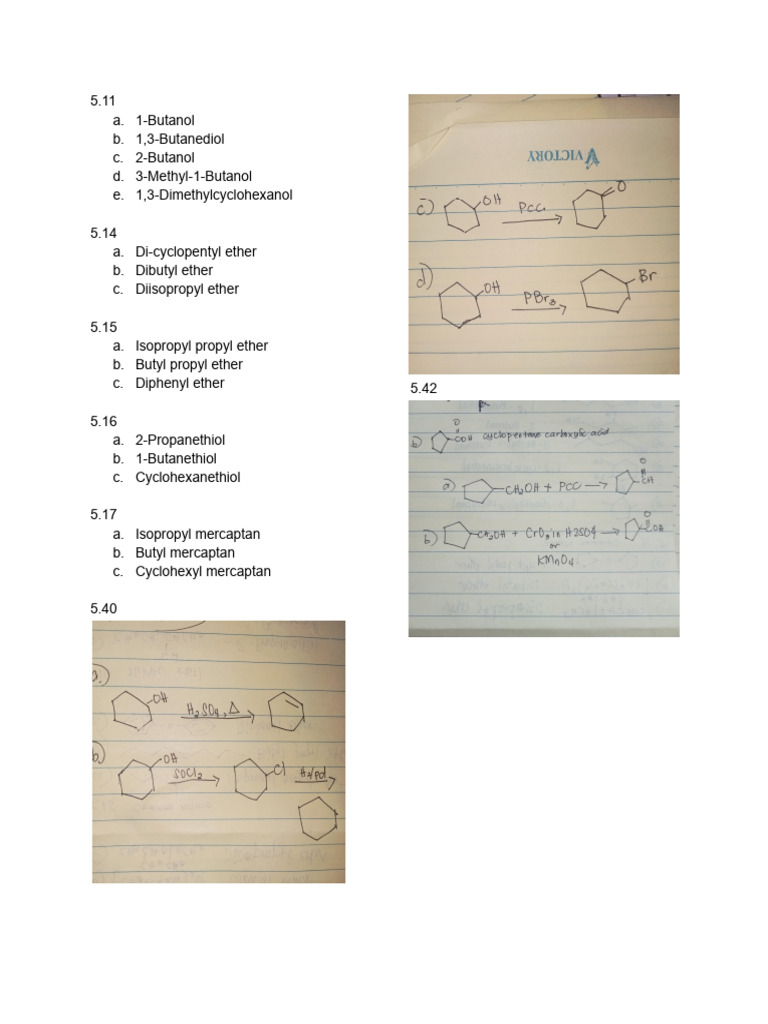 5.11
a. 1-Butanol
b. 1,3-Butanediol
c. 2-Butanol
d. 3-Methyl-1-Butanol
e. 1,3-Dimethylcyclohexanol
5.14
a. Di-cyclopentyl ether
b. Dibutyl ether
c. Diisopropyl ether
5.15
a. Isopropyl propyl ether
b. Butyl propyl ether
c. Diphenyl ether
5.16
a. 2-Propanethiol
b. 1-Butanethiol
c. Cyclohexanethiol
5.17
a. Isopropyl mercaptan
b. Butyl mercaptan
c. Cyclohexyl mercaptan
5.40
OH
H2SO4, Δ
OH
SOCl2
Cl
H2/pd
VICTORY
c) OH PCC O
d) OH PBr3 Br
5.42
O
b) COH cyclopentane carboxylic acid
O
a) CH2OH + PCC CH
O
b) CH2OH + CrO3 in H2SO4 COH
or
KMnO4